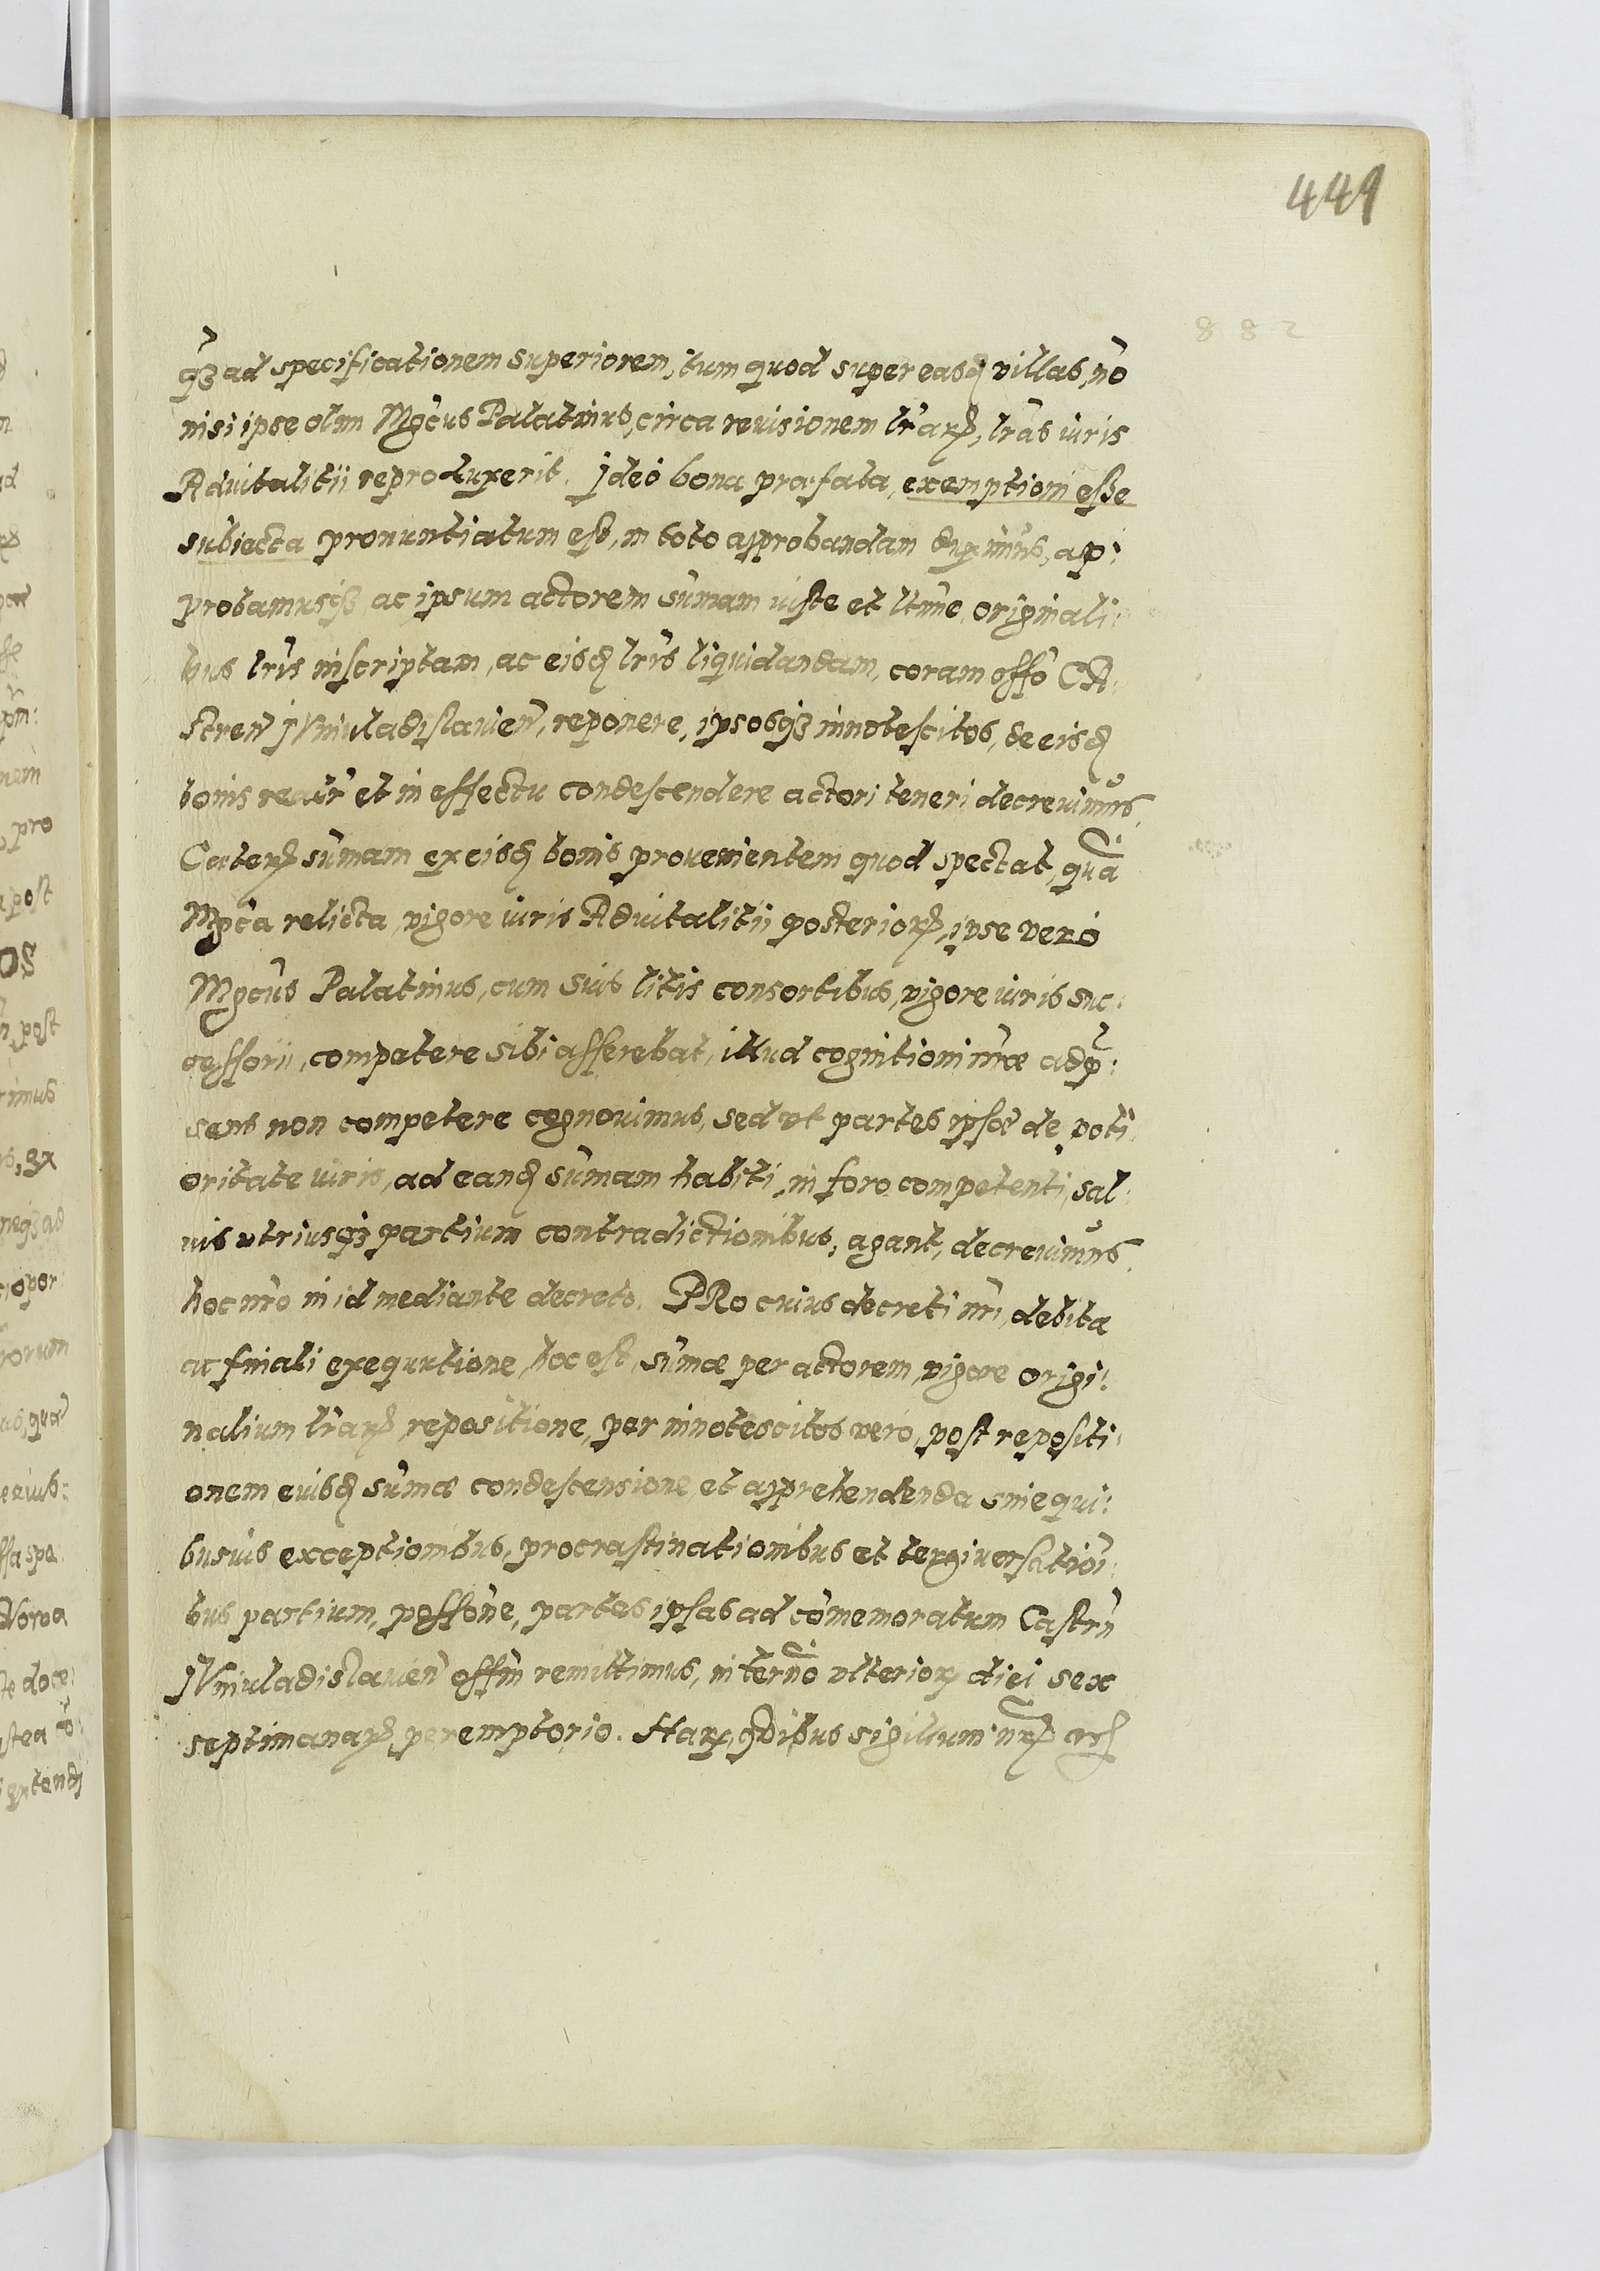 449
q̃ȝ ad specificationem superiorem, tum quod super easdꝫ villas, nõ
nisi ipse olim Mgcûs Palatinus, circa reuisionem lr̃arꝝ, lr̃as iuris
Aduitalitii reproduxerit. Jdeò bona præfata, exemptioni eſſe
subiecta pronuntiatum eſt, in toto approbandam duximus, ap:
probamusqȝ ac ipsum actorem sum̃am iuſte et ltim̃e originali:
bus lr̃is inſcriptam, ac eisdꝫ lr̃is liquidandam, coram offõ CA:
ſtren̄ JVniuladiſlauien̄, reponere, ipsosqȝ innoteſcitos, de eisdꝫ
bonis et in effectu condeſcendere actori teneri decreuimus.
Cæterꝝ sum̃am ex eisdꝫ bonis prouenientem quod spectat, quã
Mgcã relicta, vigore iuris Aduitalitii posteriorꝝ, ipse verò
Mgcûs Palatinus, cum suis litis consortibus, vigore iuris suc:
ceſſorii, competere sibi aſſerebat, illud cognitioni nr̃æ adp̃:
sens non competere cognouimus, sed vt partes ipſæ de poti
oritate iuris, ad eandꝫ sum̃am habiti, in foro competenti, sal:
uis vtriusqȝ partium contradictionibus, agant, decreuimus,
hoc nr̃o in id mediante decreto. PRo cuius decreti nr̃i, debita
ac finali exequutione, hoc eſt, sum̃æ per actorem, vigore origi:
nalium lr̃arꝝ repositione, per innotescitos verò, poſt repoſiti:
onem eiusdꝫ sum̃æ condeſcensione, et apprehendenda sine qui:
busuis exceptionibus, procraſtinationibus et tergiuerſatiõi:
bus partium, poſſõne, partes ipſas ad com̃emoratum Caſtrñ
JVniuladislauien̄ offm̃ remittimus, in termõ vlteriorꝫ diei sex
septimanarꝝ peremptorio. Harꝫ, qbibus sigillum nrꝝ